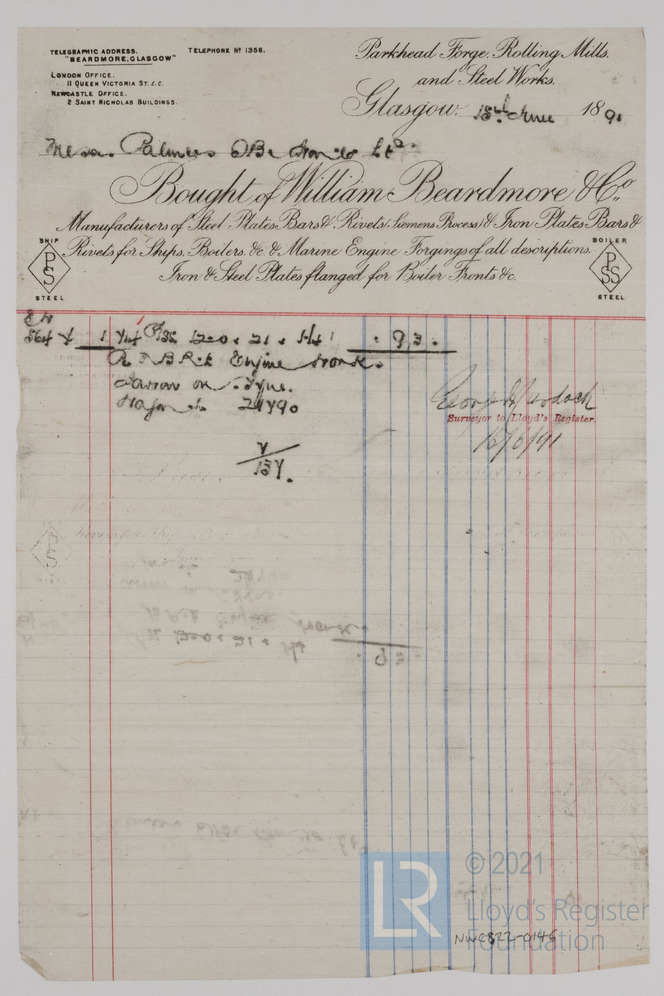 TELEGRAPHIC ADDRESS. TELEPHONE Nº 1356.
"BEARDMORE, GLASGOW"
LONDON OFFICE.
11 QUEEN VICTORIA ST. E.C.
NEWCASTLE OFFICE.
2 SAINT NICHOLAS BUILDINGS.
Parkhead Forge, Rolling Mills,
and Steel Works.
Glasgow, 15th June 1891
Messrs. Palmers SB & Iron Co Ltd.
Bought of William Beardmore & Co.,
Manufacturers of Steel Plates Bars & Rivets (Siemens Process) & Iron Plates Bars &
Rivets for Ships, Boilers, &c. & Marine Engine Forgings of all descriptions.
Iron & Steel Plates flanged for Boiler Fronts &c.
SHIP
PS
STEEL
BOILER
PSS
STEEL
564 1
Engine Works.
Jarrow on Tyne.
24790
137.
Surveyor to Lloyd's Register.
15/6/91
LR
© 2021
Lloyd's Register
Foundation
NWC822-0146